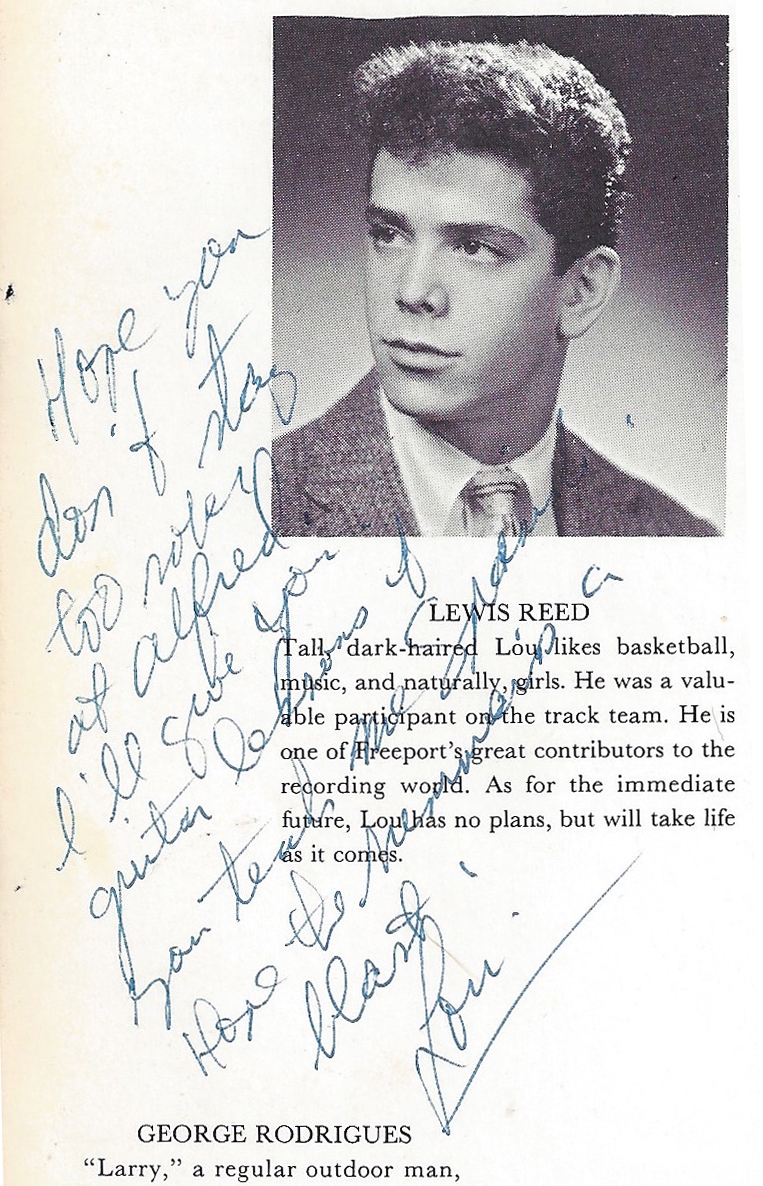 Hope you
don't stay
too sober
at Alfred.
I'll give you
guitar lessons if
you teach me Spanish.
Hope the summers a
blast.
Lou.
LEWIS REED
Tall, dark-haired Lou likes basketball,
music, and naturally, girls. He was a valu-
able participant on the track team. He is
one of Freeport's great contributors to the
recording world. As for the immediate
future, Lou has no plans, but will take life
as it comes.
GEORGE RODRIGUES
“Larry,” a regular outdoor man,